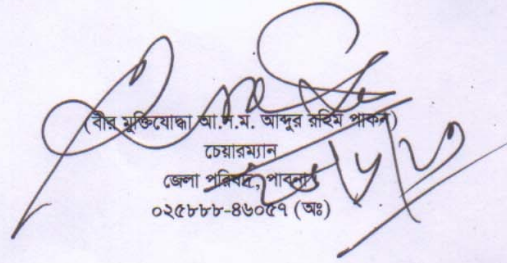 (বীর মুক্তিযোদ্ধা আ.স.ম. আব্দুর রহিম পাকন)
চেয়ারম্যান
জেলা পরিষদ, পাবনা
০২৫৮৮৮-৪৬০৫৭ (অঃ)